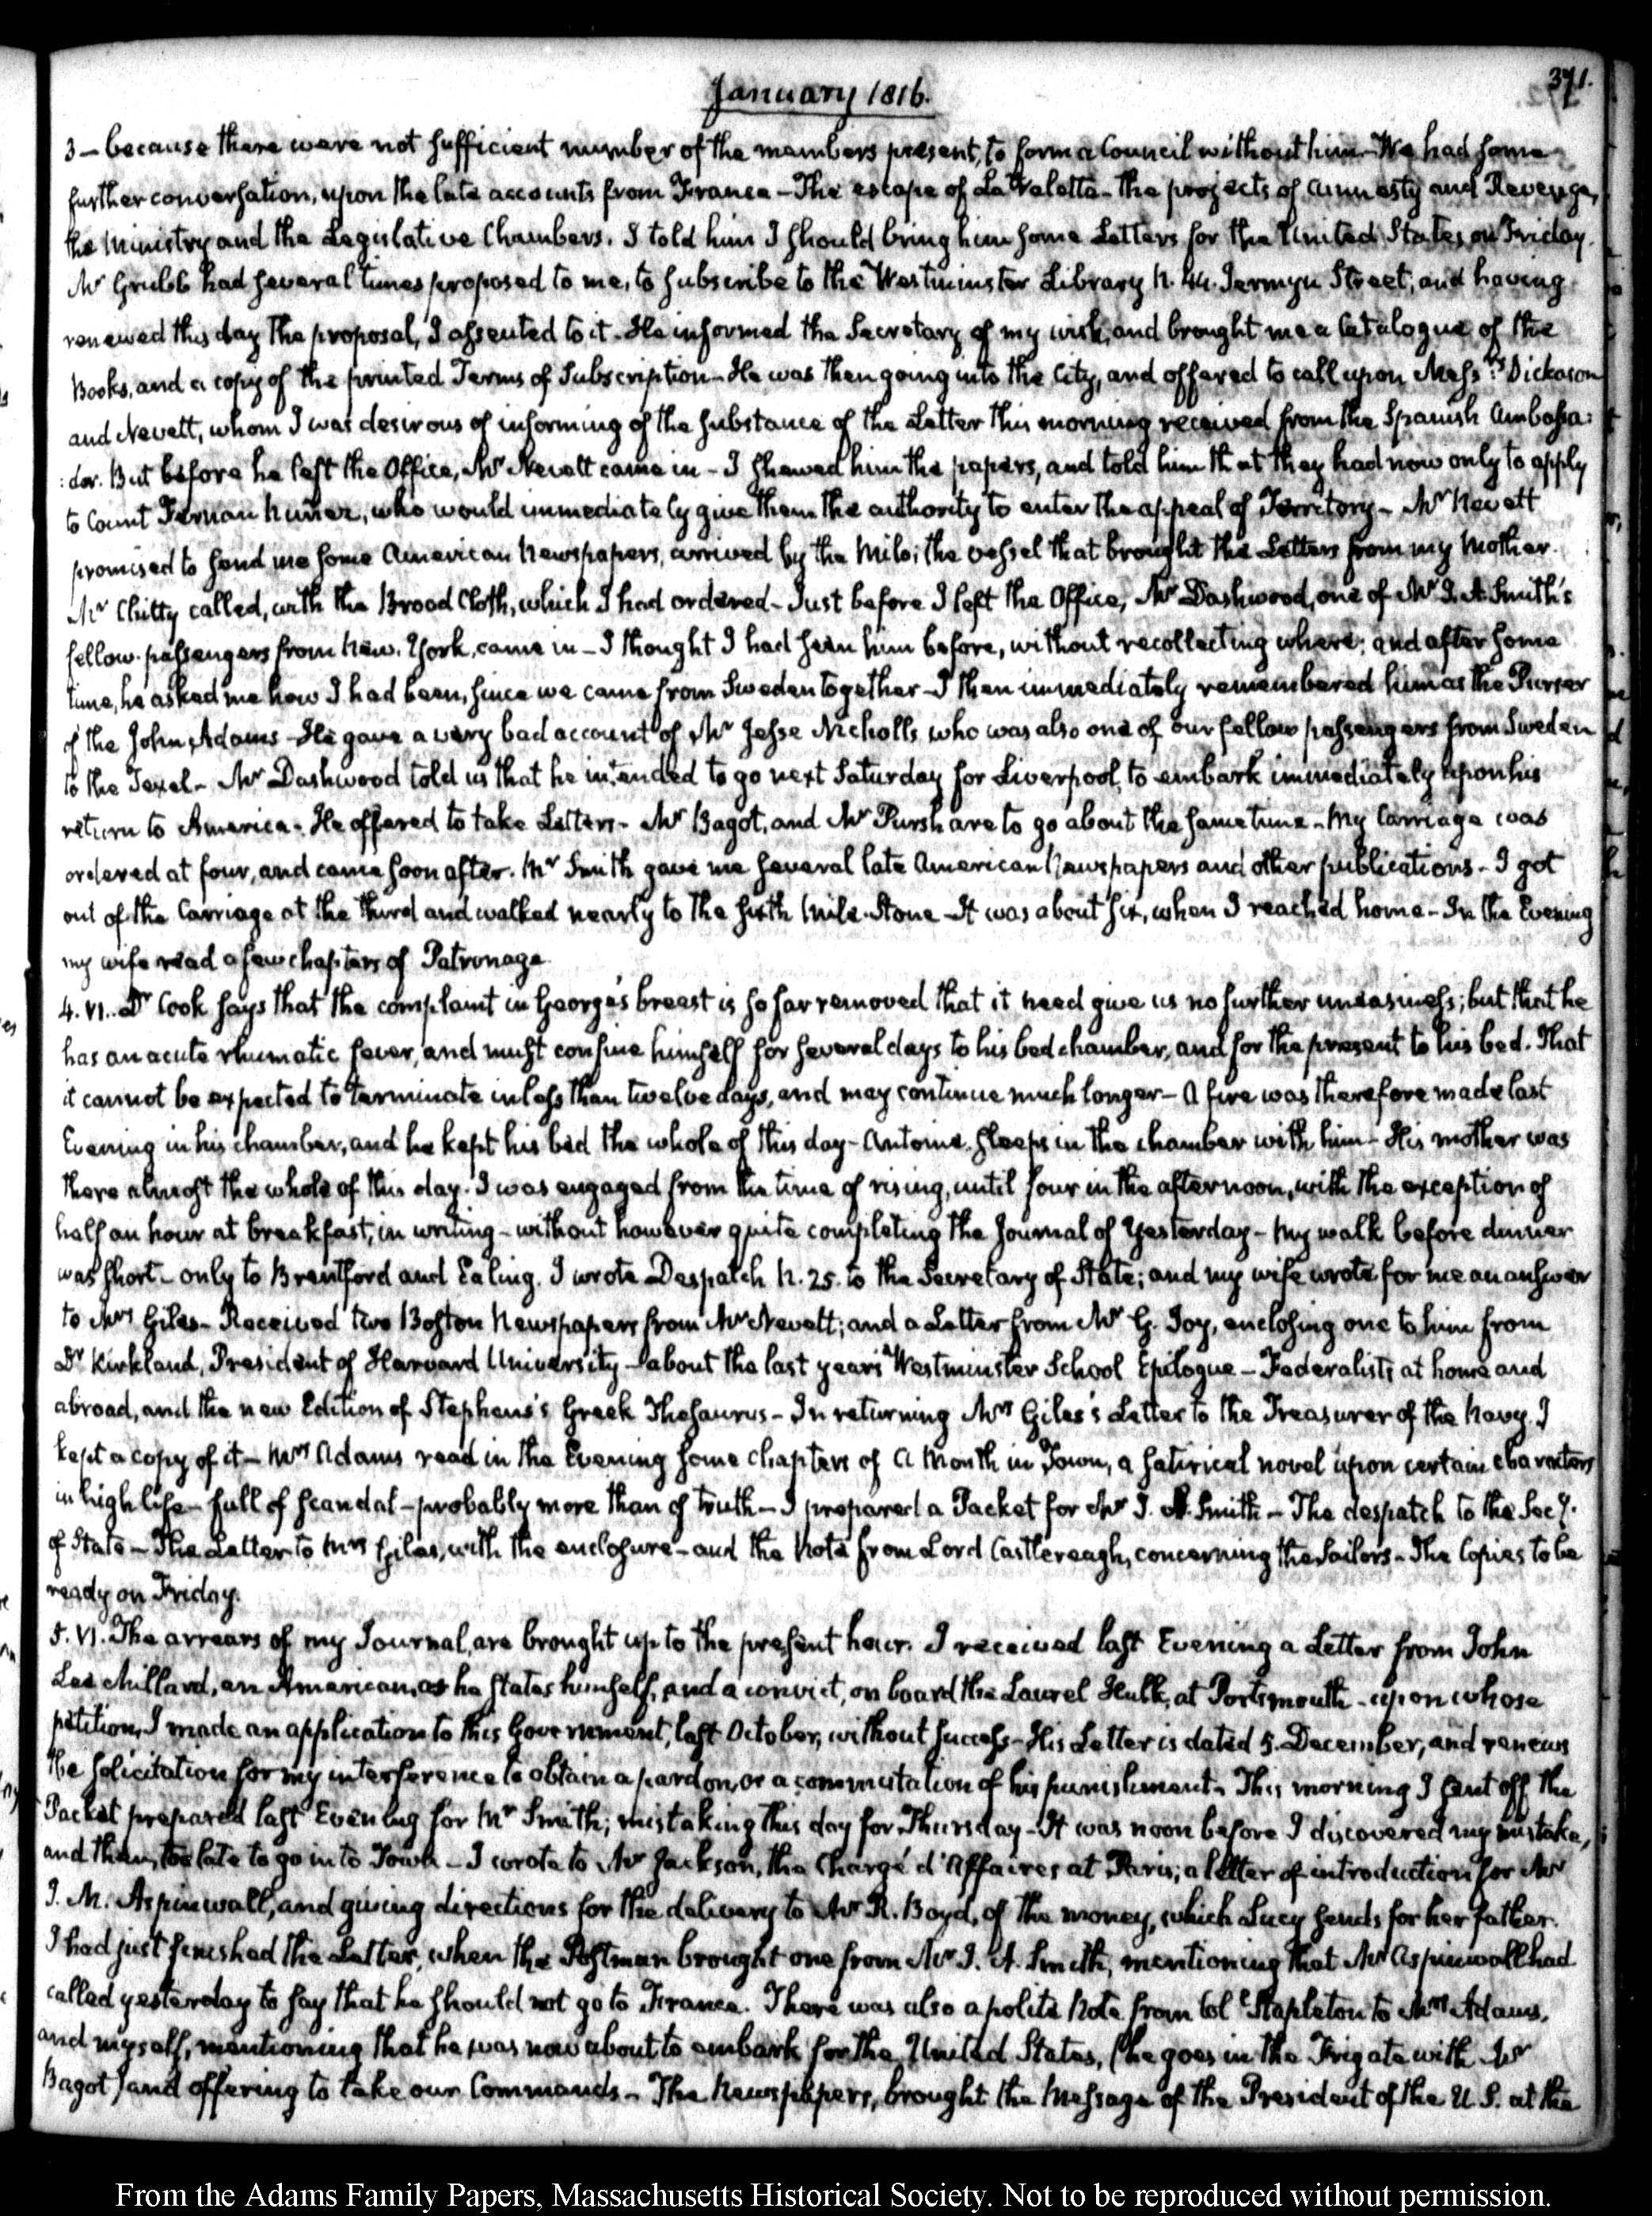 January 1816.
371.
3 - because there were not sufficient number of the members present, to form a Council without him - We had some
further conversation, upon the late accounts from France - The escape of La Valette - the projects of amnesty and Revenge,
the Ministry and the Legislative Chambers. I told him I should bring him some Letters for the United States, on Friday.
Mr Grubb had several times proposed to me, to subscribe to the Westminster Library N. 44. Jermyn Street; and having
renewed this day the proposal, I assented to it - He informed the Secretary of my wish, and brought me a Catalogue of the
Books, and a copy of the printed Terms of Subscription - He was then going into the City, and offered to call upon Messrs. Dickason
and Nevett, whom I was desirous of informing of the substance of the Letter this morning received from the Spanish Ambassa:
:dor. But before he left the Office, Mr Nevett came in - I shewed him the papers, and told him that they had now only to apply
to Count Fernan Nuñez, who would immediately give them the authority to enter the appeal of Territory - Mr Nevett
promised to send me some American Newspapers, arrived by the Milo; the vessel that brought the Letters from my Mother.
Mr Chitty called, with the Broad Cloth, which I had ordered - Just before I left the Office, Mr Dashwood, one of Mr J. A. Smith's
fellow-passengers from New-York, came in - I thought I had seen him before, without recollecting where; and after some
time, he asked me how I had been, since we came from Sweden together - I then immediately remembered him as the Purser
of the John Adams - He gave a very bad account of Mr Jesse Nicholls, who was also one of our fellow passengers from Sweden
to the Texel - Mr Dashwood told us that he intended to go next Saturday for Liverpool, to embark immediately upon his
return to America. He offered to take Letters - Mr Bagot, and Mr Pursh are to go about the same time - My Carriage was
ordered at four, and came soon after. Mr Smith gave me several late American Newspapers and other publications - I got
out of the Carriage at the third and walked nearly to the sixth Mile-Stone - It was about six, when I reached home - In the Evening
my wife read a few chapters of Patronage.
4. VI. Dr Cook says that the complaint in George's breast is so far removed that it need give us no further uneasiness; but that he
has an acute rhumatic fever, and must confine himself for several days to his bed chamber, and for the present to his bed. That
it cannot be expected to terminate in less than twelve days, and may continue much longer - A fire was therefore made last
Evening in his chamber, and he kept his bed the whole of this day - Antoine sleeps in the chamber with him - His mother was
there almost the whole of this day. I was engaged from the time of rising, until four in the afternoon, with the exception of
half an hour at breakfast, in writing - without however quite completing the Journal of Yesterday - My walk before dinner
was short - only to Brentford and Ealing. I wrote Despatch N. 25. to the Secretary of State; and my wife wrote for me an answer
to Mrs Giles - Received two Boston Newspapers from Mr Nevett; and a Letter from Mr G. Joy, enclosing one to him from
Dr Kirkland, President of Harvard University - about the last year's Westminster School Epilogue - Federalists at home and
abroad, and the new Edition of Stephens's Greek Thesaurus - In returning Mrs Giles's Letter to the Treasurer of the Navy I
kept a copy of it - Mrs Adams read in the Evening some chapters of A Month in Town, a satirical novel upon certain characters
in high life - full of scandal - probably more than of truth - I prepared a Packet for Mr J. A. Smith - The despatch to the Secy.
of State - The Letter to Mrs Giles, with the enclosure - and the Note from Lord Castlereagh, concerning the Sailors - The Copies to be
ready on Friday.
5. VI. The arrears of my Journal, are brought up to the present hour. I received last Evening a Letter from John
Lee Millard, an American, as he states himself, and a convict, on board the Laurel Hulk, at Portsmouth - upon whose
petition, I made an application to this Government, last October, without success - His Letter is dated 5. December, and renews
the solicitation for my interference to obtain a pardon, or a commutation of his punishment. This morning I sent off the
Packet prepared last Evening for Mr Smith; mistaking this day for Thursday - It was noon before I discovered my mistake,
and then, too late to go into Town - I wrote to Mr Jackson, the Chargé d'Affaires at Paris; a letter of introduction for Mr
J. M. Aspinwall, and giving directions for the delivery to Mr R. Boyd, of the money, which Lucy sends for her father.
I had just finished the Letter, when the Postman brought one from Mr J. A. Smith, mentioning that Mr Aspinwall had
called yesterday to say that he should not go to France. There was also a polite Note from Coll Stapleton to Mrs Adams,
and myself, mentioning that he was now about to embark for the United States, (he goes in the Frigate with Mr
Bagot) and offering to take our Commands - The Newspapers, brought the Message of the President of the U.S. at the
From the Adams Family Papers, Massachusetts Historical Society. Not to be reproduced without permission.